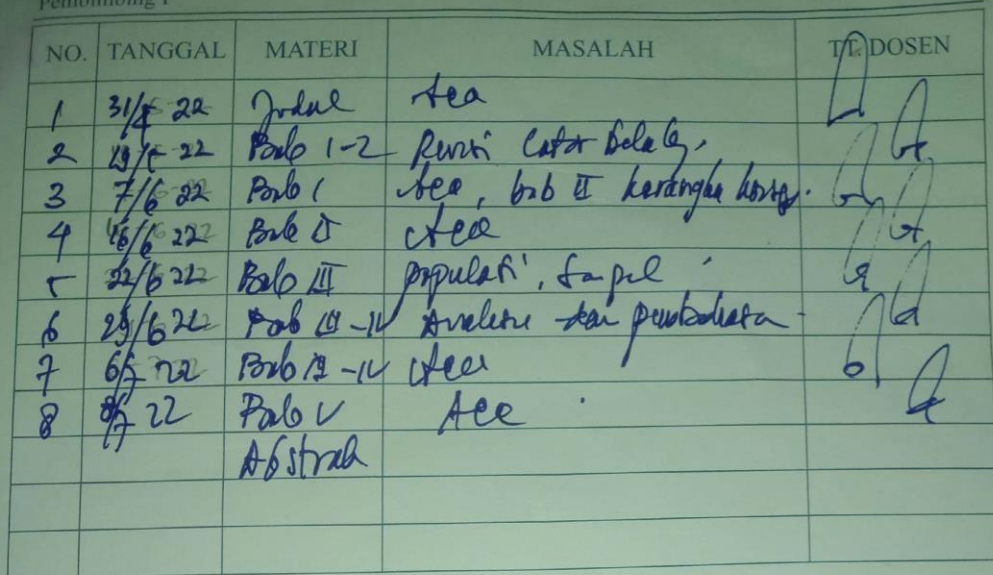 Pembimbing I
NO. TANGGAL MATERI MASALAH TT. DOSEN
1 22 Judul Acc
2 22 Bab 1-2 Revisi Latar belakg,
3 7/6 22 Bab I Acc, bab II kerangka
4 16/6 22 Bab II Acc
5 22/6 22 Bab III populasi, Sampel
6 29/6 22 Bab III-IV dan pembahasa
7 6/7 22 Bab III-IV Acc
8 22 Bab V Acc
Abstrak